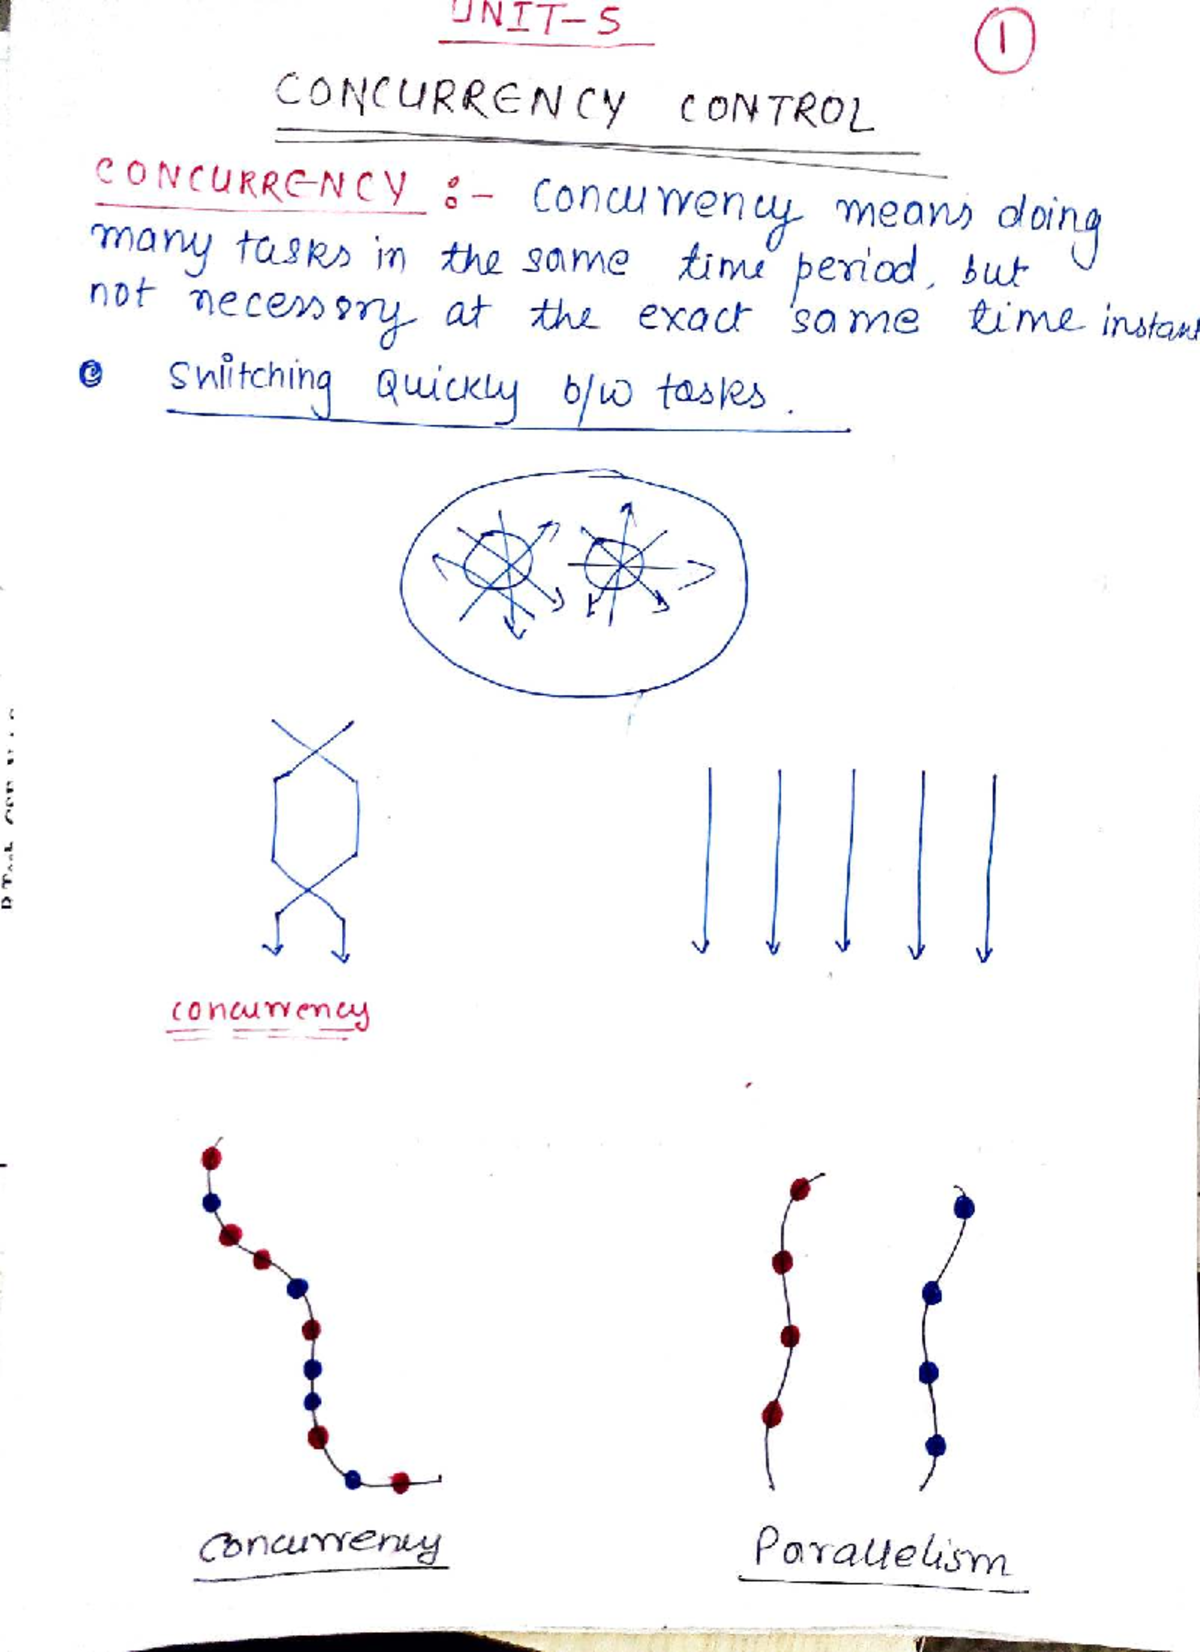 UNIT-5
1
CONCURRENCY CONTROL
CONCURRENCY :- Concurrency means doing
many tasks in the same time period, but
not necessory at the exact same time instant
Switching Quickly b/w tasks.
concurrency
Concurrency
Parallelism